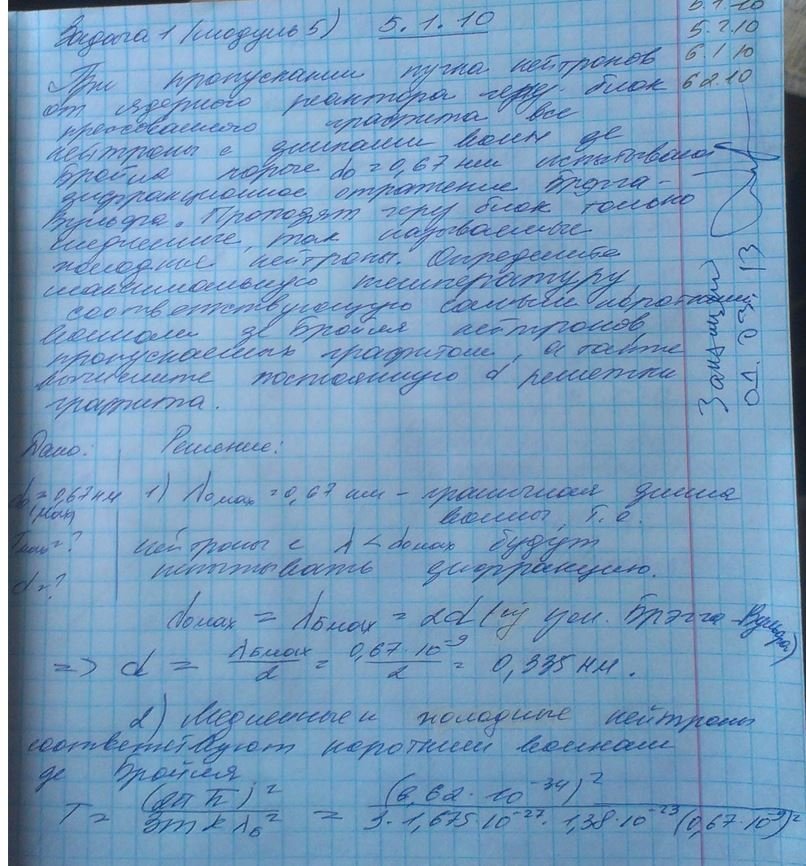 Задача 1 (модуль 5) 5.1.10
5.1.10
5.2.10
6.1.10
6.2.10
При пропускании пучка нейтронов
от ядерного реактора через блок
прессованного графита все
нейтроны с длинами волн де
Бройля короче λ₀ = 0,67 нм испытывают
дифракционное отражение Брэгга-
Вульфа. Проходят через блок только
медленные, так называемые
холодные нейтроны. Определите
максимальную температуру,
соответствующую самым коротким
волнам де Бройля нейтронов,
пропускаемых графитом, а также
вычислите постоянную d решетки
графита.
01.03.13
Дано: Решение:
λ₀ = 0,67 нм 1) λ₀max = 0,67 нм – граничная длина
(max) волны, т.е.
Tmax = ? нейтроны с λ < λ₀max будут
d = ? испытывать дифракцию.
λ₀max = λБmax = 2d (из усл. Брэгга-Вульфа)
=> d = λБmax / 2 = 0,67·10⁻⁹ / 2 = 0,335 нм.
2) Медленные и холодные нейтроны
соответствуют коротким волнам
де Бройля
T = (2πħ)² / 3mkλБ² = (6,62·10⁻³⁴)² / 3·1,675·10⁻²⁷·1,38·10⁻²³(0,67·10⁻⁹)²